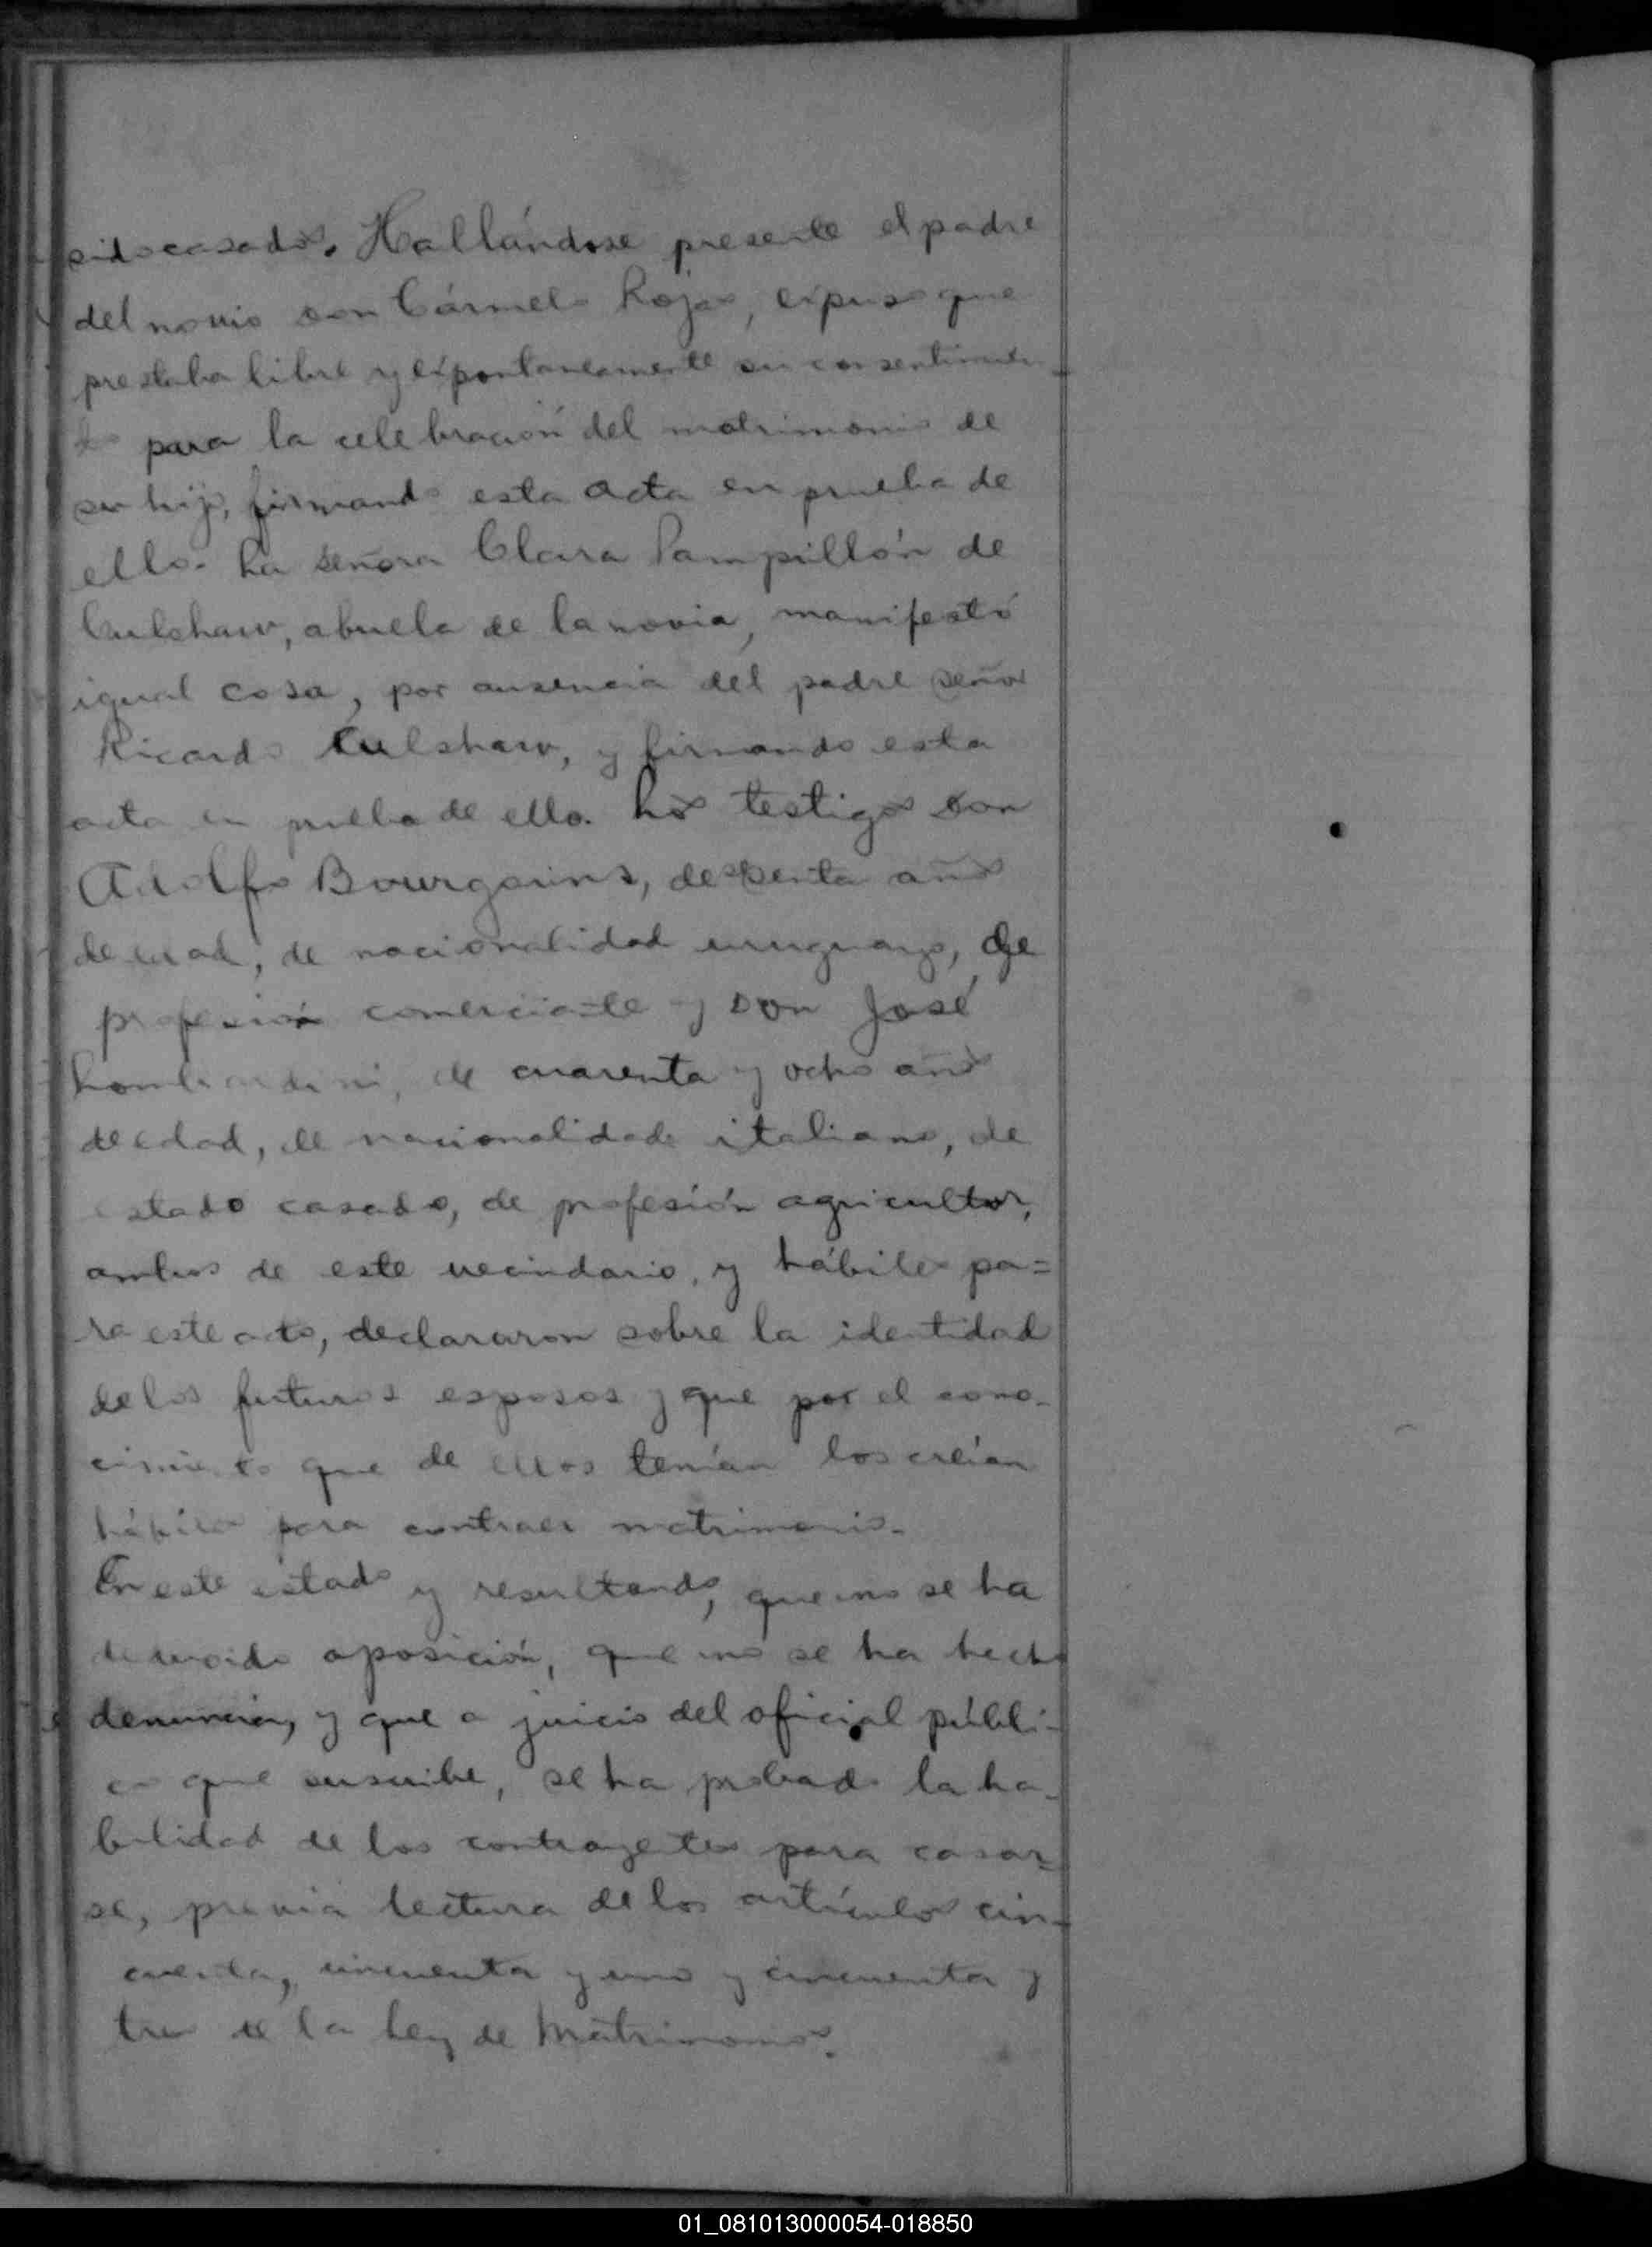 sido casados. Hallándose presente el padre
del novio don Cármelo Rojas, expuso que
prestaba libre y expontaneamente su consentimien-
to para la celebración del matrimonio de
su hijo, firmando esta acta en prueba de
ello. La señora Clara Pampillón de
Culshaw, abuela de la novia, manifestó
igual cosa, por ausencia del padre señor
Ricardo Culshaw, y firmando esta
acta en prueba de ello. Los testigos don
Adolfo Bourgoins, de años
de edad, de nacionalidad uruguayo, de
profesión comerciante y Don José
Lombardini, de cuarenta y ocho años
de edad, de nacionalidad italiano, de
estado casado, de profesión agricultor,
ambos de este vecindario, y hábiles pa=
ra este acto, declararon sobre la identidad
de los futuros esposos y que por el cono-
cimiento que de ellos tenían los creían
hábiles para contraer matrimonio.
En este estado y resultando, que no se ha
deducido oposición, que no se ha hecho
denuncia, y que a juicio del oficial públi-
co que suscribe, se ha probado la ha-
bilidad de los contrayentes para casar-
se, previa lectura de los artículos cin-
cuenta, cincuenta y uno y cincuenta y
tres de la Ley de Matrimonio.
01_081013000054-018850